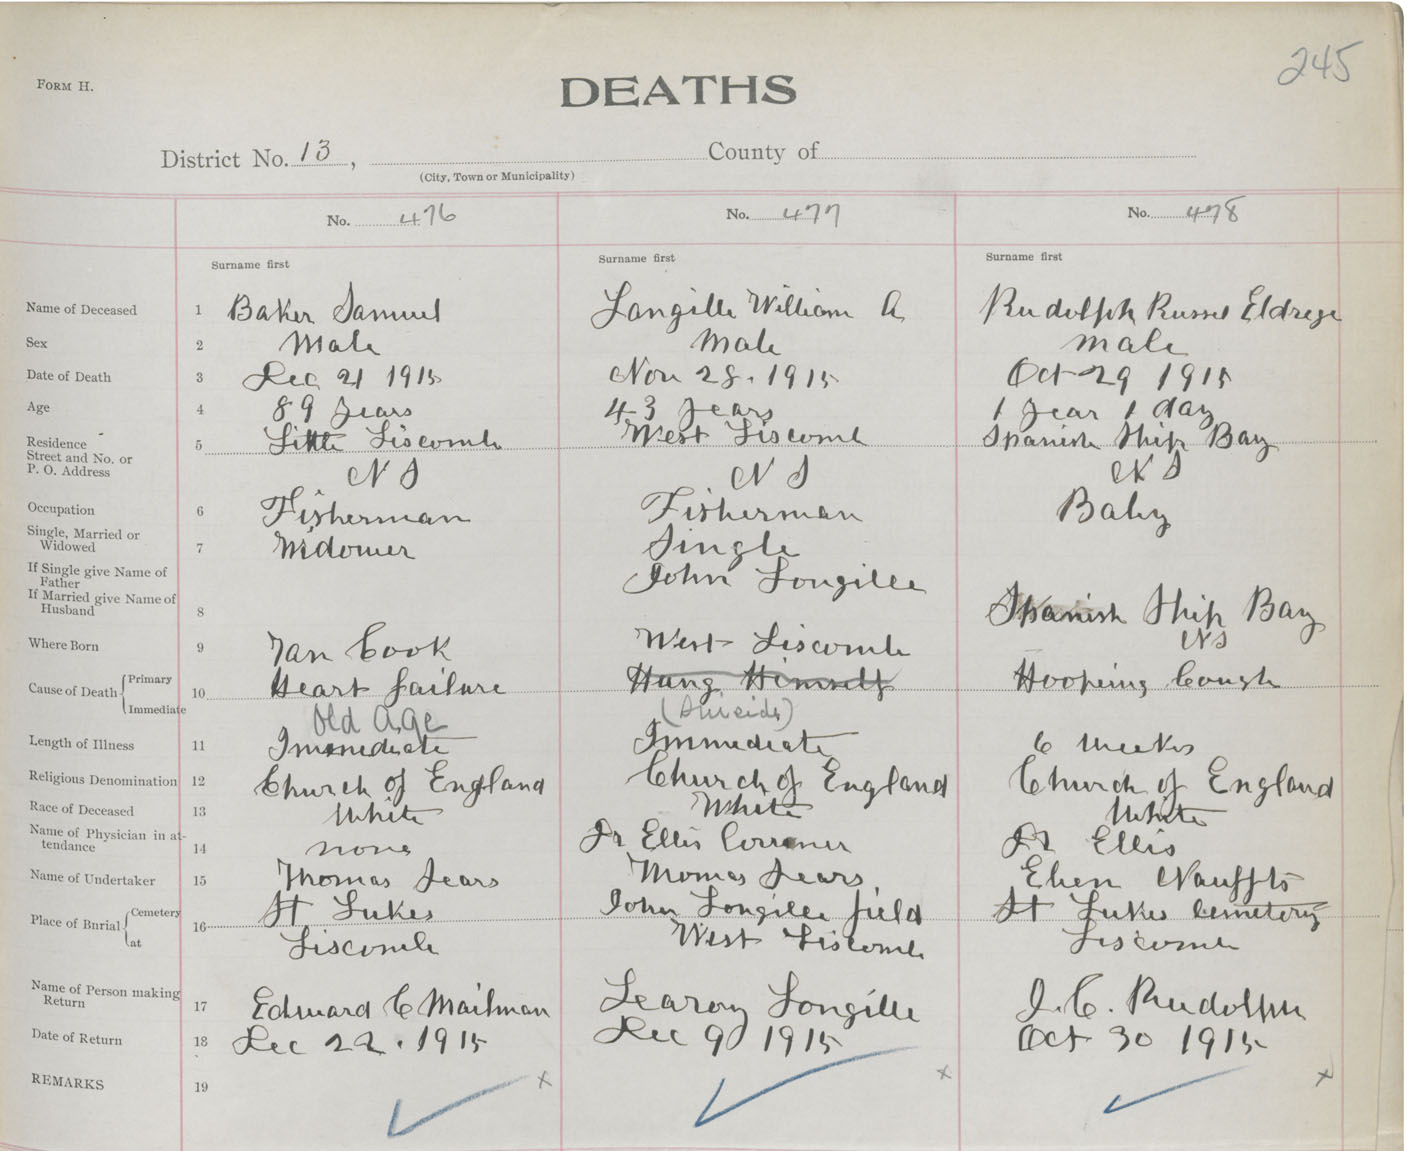 245
FORM H.
DEATHS
District No. 13, County of
(City, Town or Municipality)
No. 476 No. 477 No. 478
Surname first Surname first Surname first
Name of Deceased 1 Baker Samuel Langille William A Rudolph Russel Eldrege
Sex 2 Male Male male
Date of Death 3 Dec 21 1915 Nov 28. 1915 Oct 29 1915
Age 4 89 years 43 years 1 year 1 day
Residence Street and No. or P. O. Address 5 Little Liscomb West Liscomb Spanish Ship Bay
N S N S N S
Occupation 6 Fisherman Fisherman Baby
Single, Married or Widowed 7 Widower Single
If Single give Name of Father John Longille
If Married give Name of Husband 8 Spanish Ship Bay
NS
Where Born 9 Tan Cook West Liscomb
Cause of Death Primary 10 Heart failure Hung Himself Hooping Cough
Immediate Old Age (Suicide)
Length of Illness 11 Immediate Immediate 6 weeks
Religious Denomination 12 Church of England Church of England Church of England
Race of Deceased 13 White White White
Name of Physician in attendance 14 none Dr Ellis Corroner Dr Ellis
Name of Undertaker 15 Thomas Sears Thomas Sears Eben Nauffts
Place of Burial Cemetery 16 St Lukes John Longille field St Lukes Cemetery
at Liscomb West Liscomb Liscomb
Name of Person making Return 17 Edward C Mailman Learoy Longille J. C. Rudolph
Date of Return 18 Dec 22. 1915 Dec 9 1915 Oct 30 1915
REMARKS 19 x x x